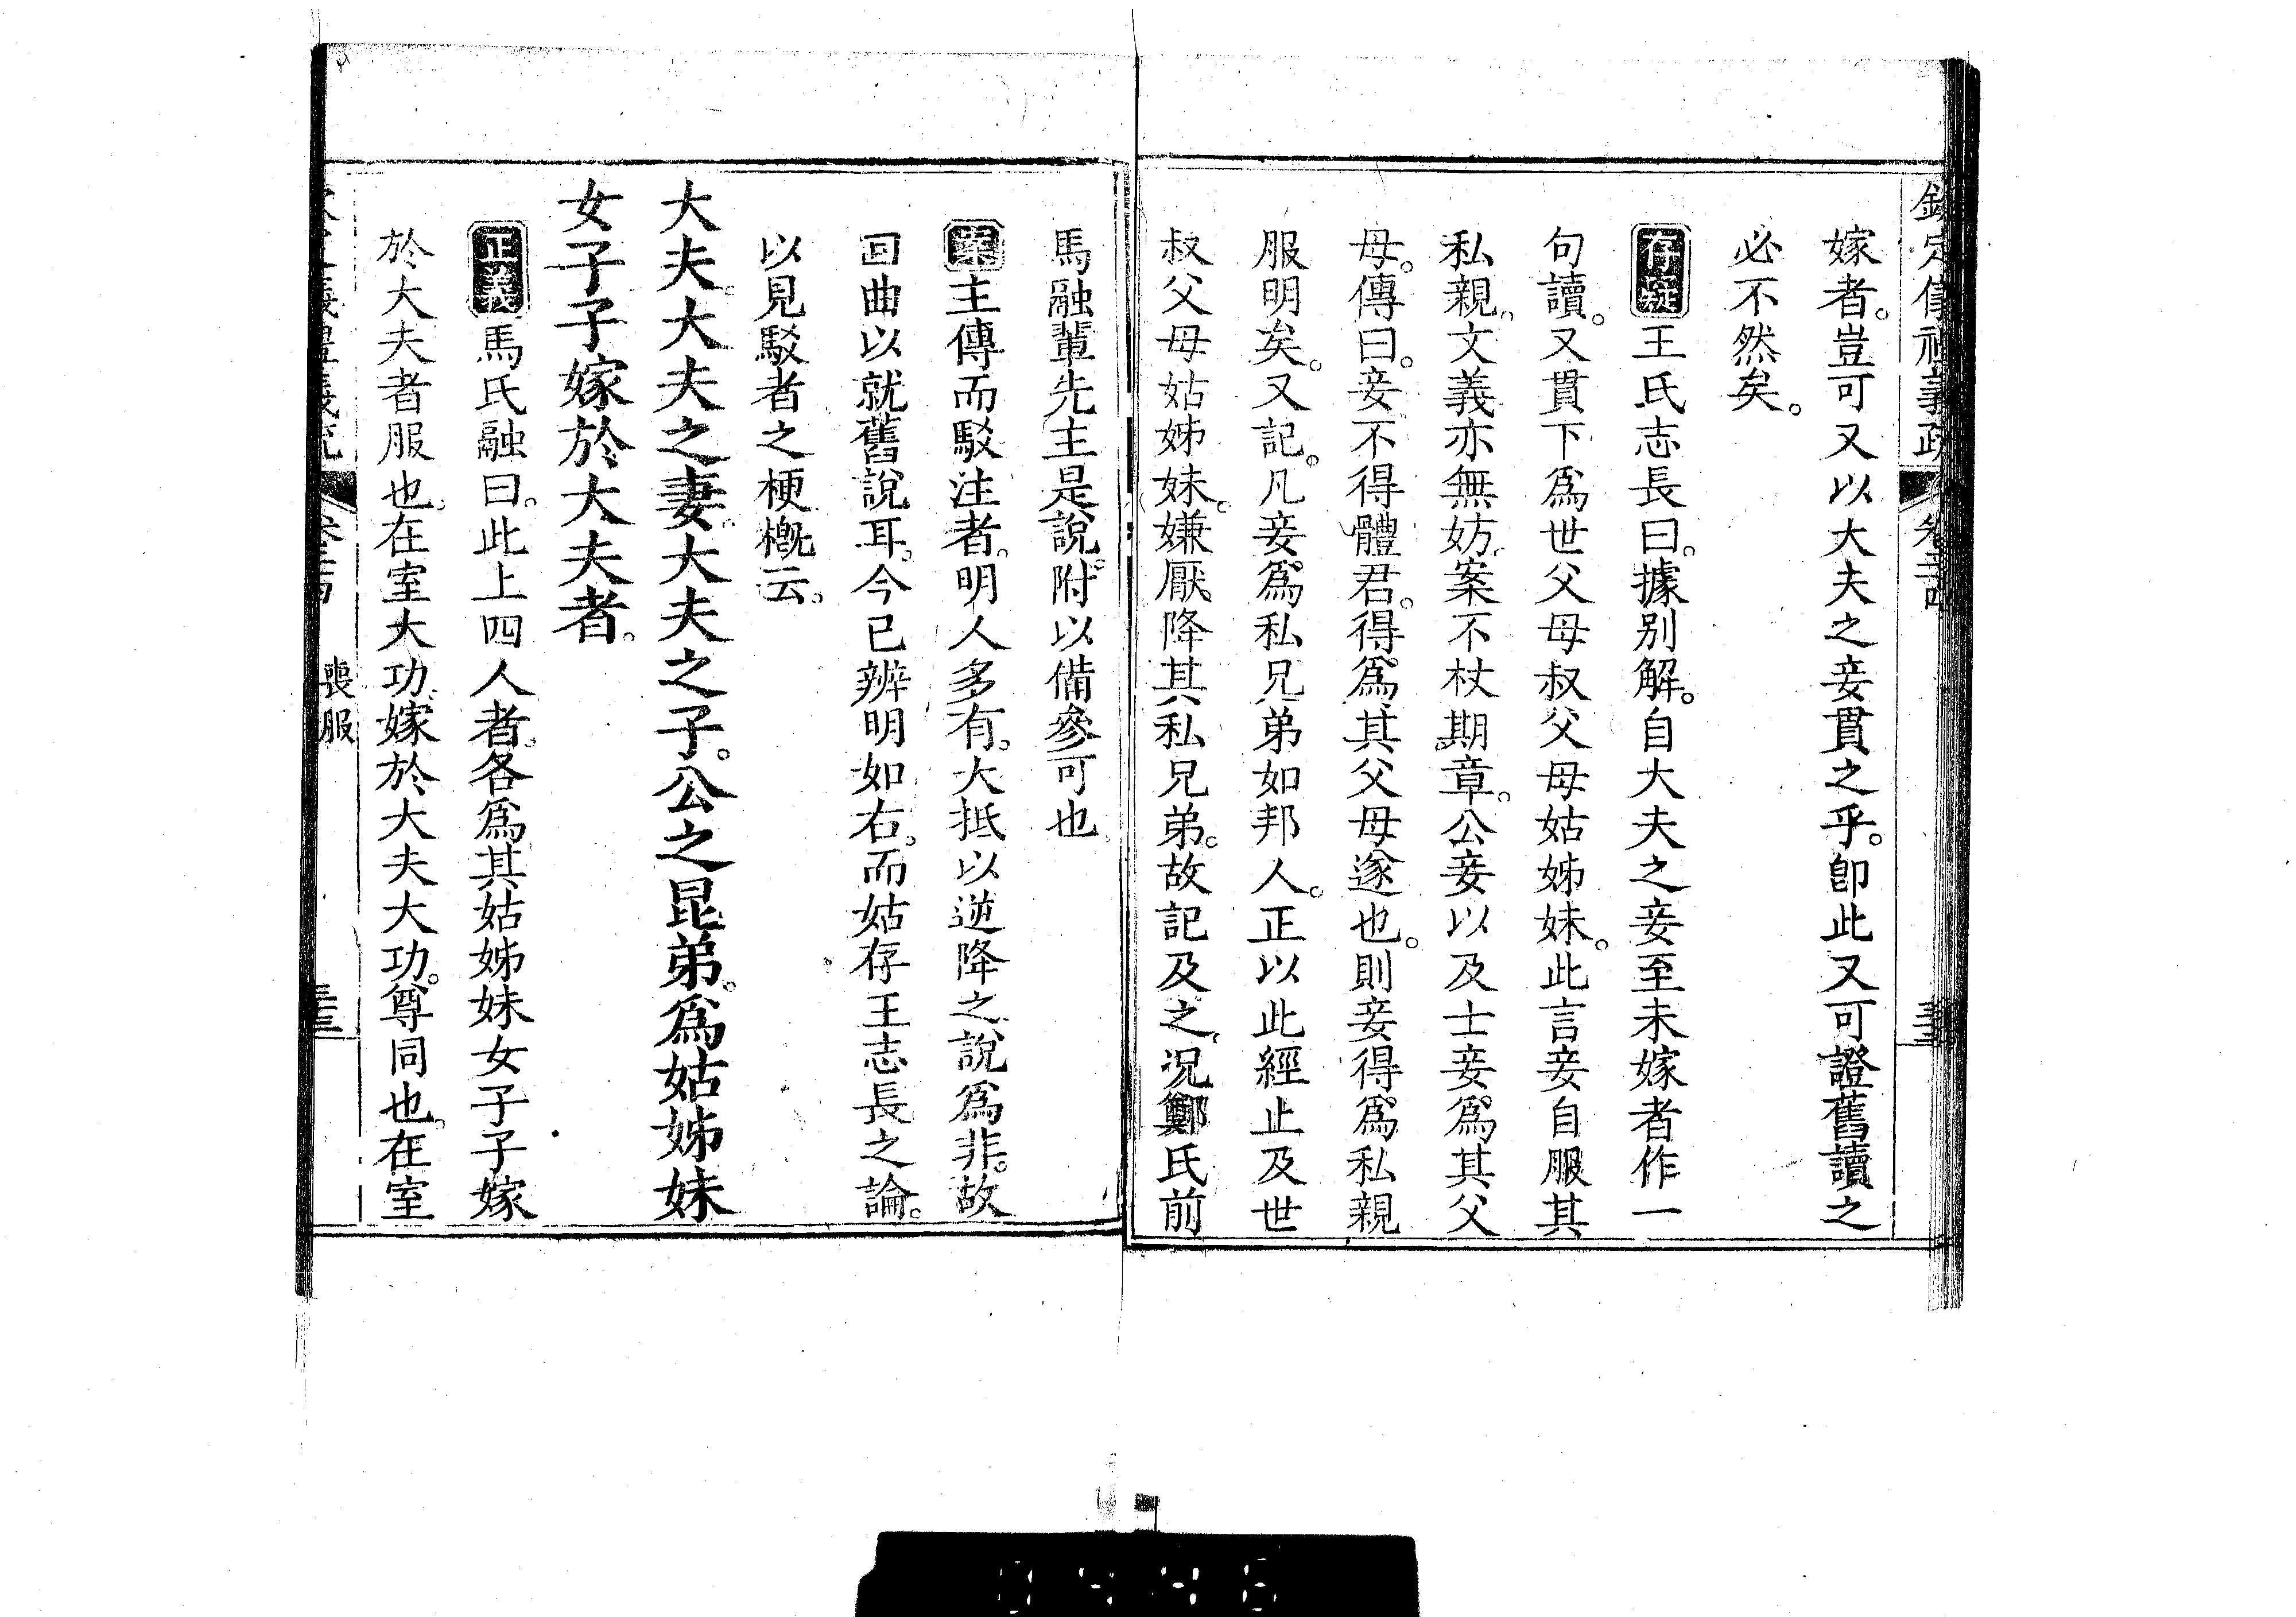 欽定儀禮義疏 卷二十四
嫁者。豈可又以大夫之妾貫之乎。卽此又可證舊讀之
必不然矣。
存疑王氏志長曰。據别解。自大夫之妾至未嫁者作一
句讀。又貫下爲世父母叔父母姑姊妹。此言妾自服其
私親。文義亦無妨。案不杖期章。公妾以及士妾爲其父
母。傳曰。妾不得體君。得爲其父母遂也。則妾得爲私親
服明矣。又記。凡妾爲私兄弟如邦人。正以此經止及世
叔父母姑姊妹。嫌厭降其私兄弟。故記及之。况鄭氏前
馬融輩先主是說。附以備參可也
案主傳而駁注者。明人多有。大抵以逆降之說爲非。故
回曲以就舊說耳。今已辨明如右。而姑存王志長之論。
以見駁者之梗槪云。
大夫。大夫之妻。大夫之子。公之昆弟。爲姑姊妹
女子子嫁於大夫者。
正義馬氏融曰。此上四人者。各爲其姑姊妹女子子嫁
於大夫者服也。在室大功。嫁於大夫大功。尊同也。在室
喪服